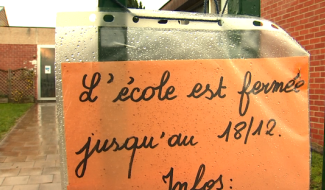 L'école est fermée
jusqu'au 18/12.
Infos: